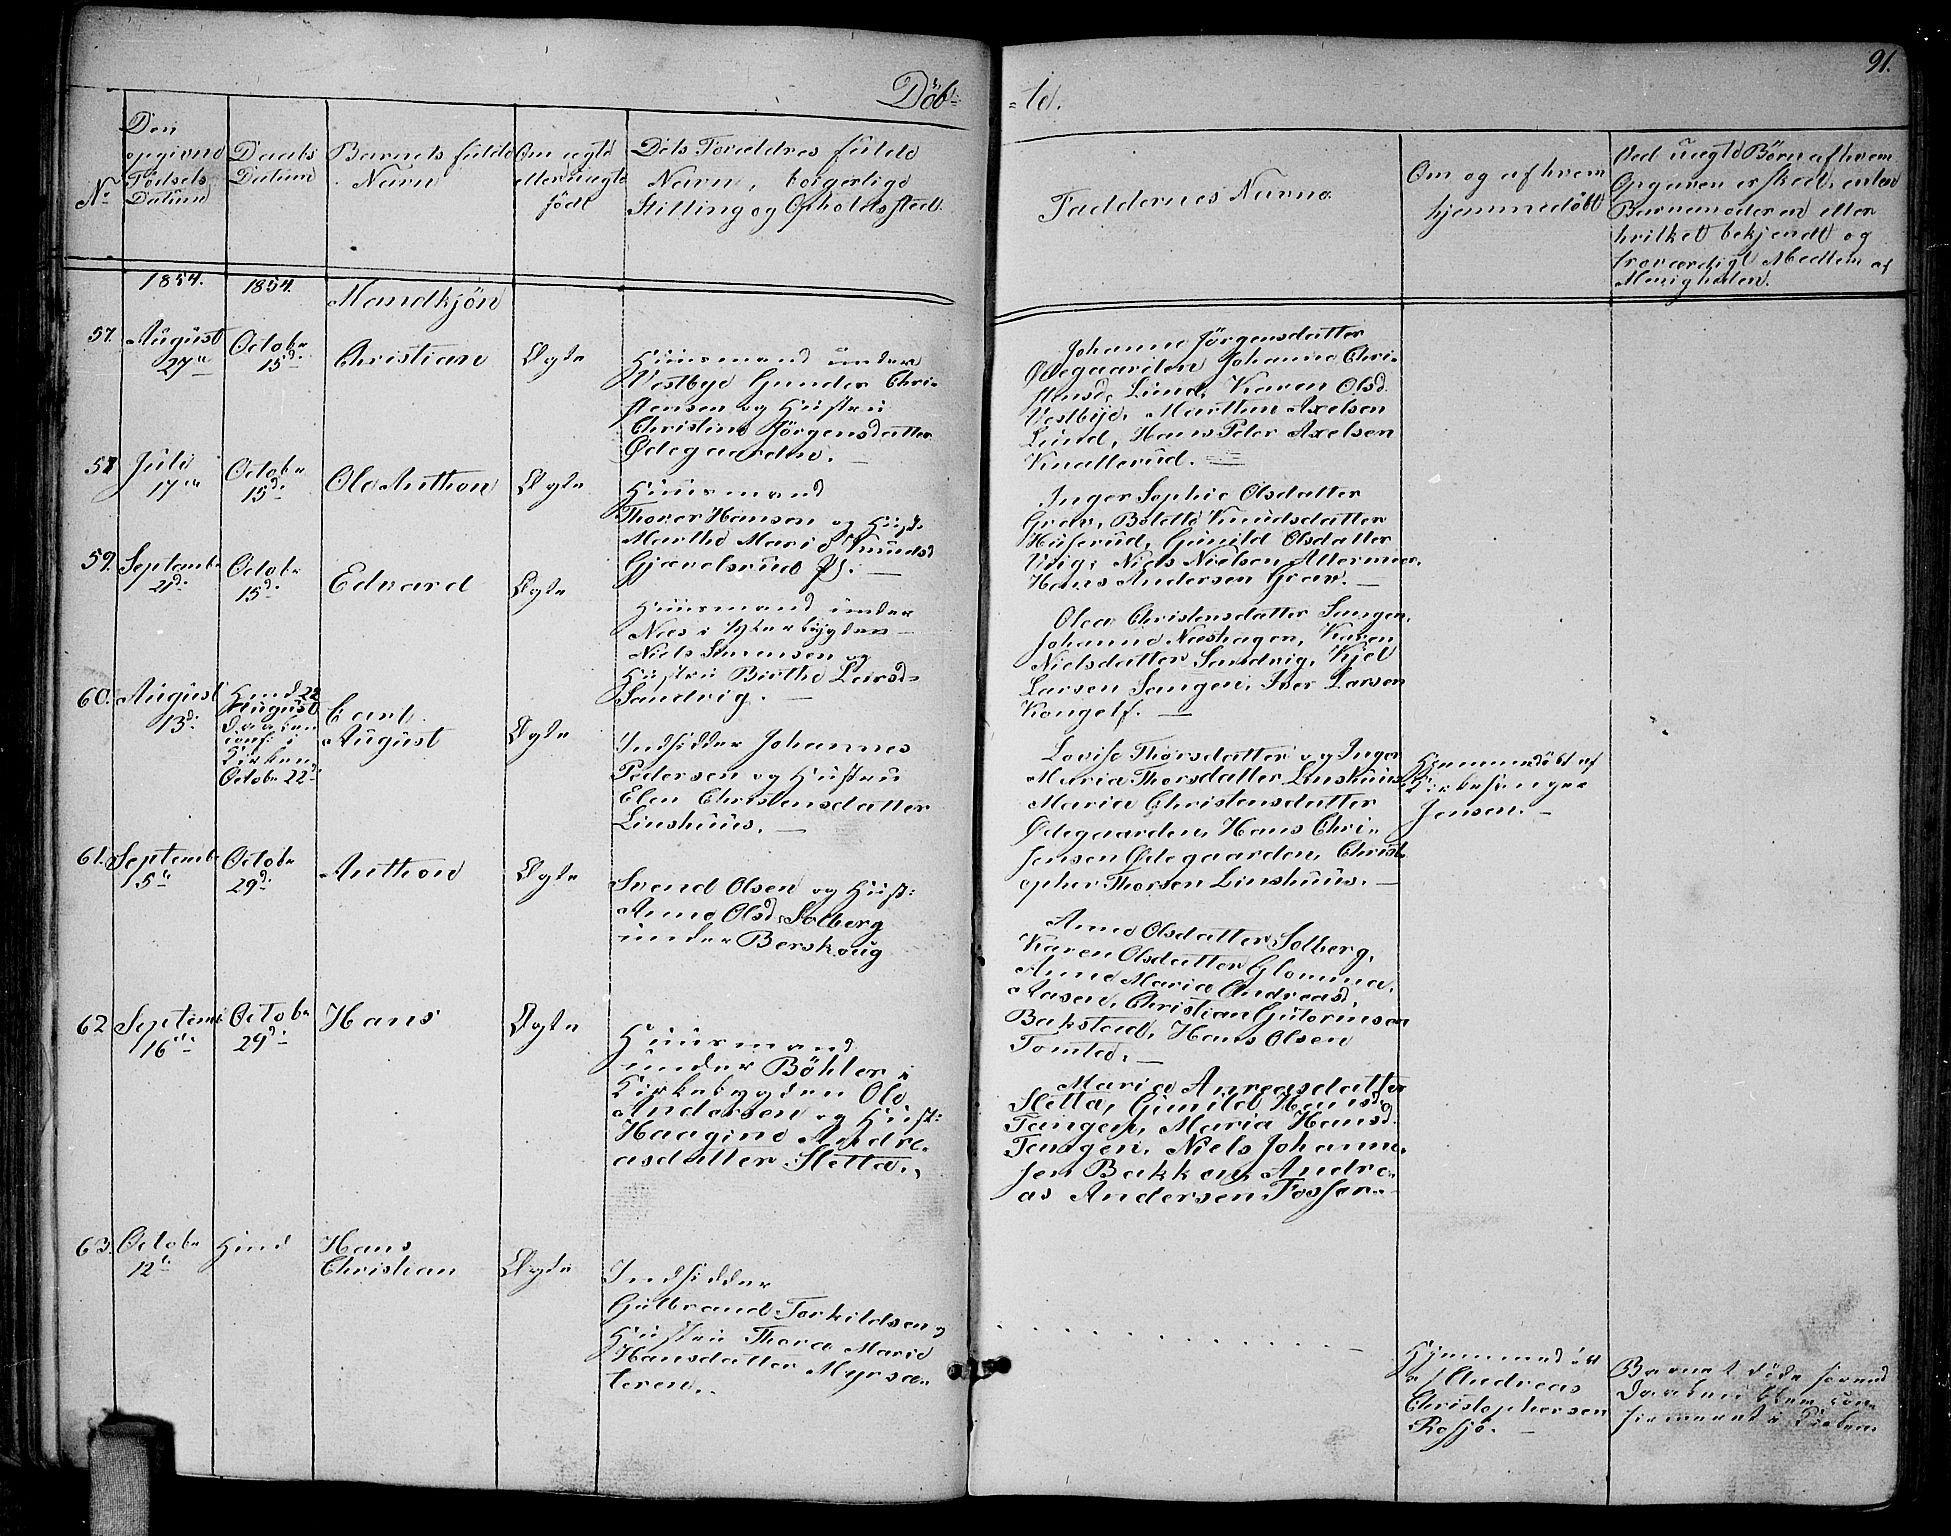 91.
Döb-
-te.
No
Den
opgivne
Födsels
Datum
Daabs
Datum
Barnets fulde
Navn
Om ægte
eller uægte
födt
Dets Forældres fulde
Navn, borgerlige
Stilling og Opholdssted.
Faddernes Navne
Om og af hvem
hjemmedöbt
Ved uægte Börn af hvem
Opgaven er skedt, enten
Barnemoderen eller
hvilket bekjendt og
troværdigt Medlem af
Menigheden.
1854.
1854.
Mandkjön
57.
August
27de
Octobr
15d:
Christian
Ægte
Huusmand under
Vestbye Gunder Chri-
stensen og Hustru
Christine Jörgensdatter
Ødegaarden. —
Johanne Jörgensdatter
Ødegaarden Johanne Chri-
stensd. Lund, Karen Olsd.
Vestbye, Marthin Axelsen
Lund, Hans Peter Axelsen
Knatterud. —
58
Juli
17de
Octobr
15d:
Ole Anthon
Ægte
Huusmand
Thorer Hansen og Hust:
Marthe Marie Knudsd
Gjævelsrud Pl. —
Inger Sophie Olsdatter
Grav, Bolette Knudsdatter
Huserud, Gunild Olsdatter
Vrig, Niels Nielsen Altermo,
Hans Andersen Grav. —
59.
Septembr
2d:
Octobr
15d:
Edvard
Ægte
Huusmand under
Næs i Ytterbygden —
Niels Sörensen og
Hustru Birthe Larsd-
Sandvig. —
Olea Christensdatter Sangen,
Johanne Næshagen, Karen
Nielsdatter Sandvig, Kjel
Larsen Sangen, Iver Larsen
Kongelf. —
60.
August
13d:
Hmd 22
August
Daaben
conf: i
Kirken
Octobr 22d:
Carl
August
Ægte
Indsidder Johannes
Pedersen og Hustru
Elen Christensdatter
Linshuus. —
Lovise Thorsdatter og Inger
Maria Thorsdatter Linshuus
Maria Christensdatter
Ødegaarden, Hans Chri-
stensen Ødegaarden, Christ-
opher Thorsen Linshuus. —
Hjemmedöbt af
Kirkesanger
Jensen. —
61.
Septembr
5te
Octobr
29d:
Anthon
Ægte
Svend Olsen og Hust:
Anne Olsd. Solberg
under Berskoug
Anne Olsdatter Solberg,
Karen Olsdatter Glomma,
Anne Maria Andreasd.
Aasen, Christian Gutormsen
Bakstad, Hans Olsen
Tomta. —
62
Septemb
16de
Octobr
29d:
Hans
Ægte
Huusmand
under Böhler i
Kirkebygden Ole
Andersen og Hust:
Haagine Andre-
asdatter Sletta.
Maria Anreasdatter
Sletta, Gunild Hansd
Tangen, Maria Hansd.
Tangen, Niels Johanne-
sen Bakken, Andre-
as Andersen Fosser. —
63.
Octobr
12te
Hmd
Hans
Christian
Ægte
Indsidder
Gulbrand Torkildsen og
Hustru Thora Marie
Hansdatter Myrsæ-
teren.
Hjemmedöbt
af Andreas
Christophersen
Rosjö. —
Barnet döde forend
Daaben blev con-
firmeret i Kirken